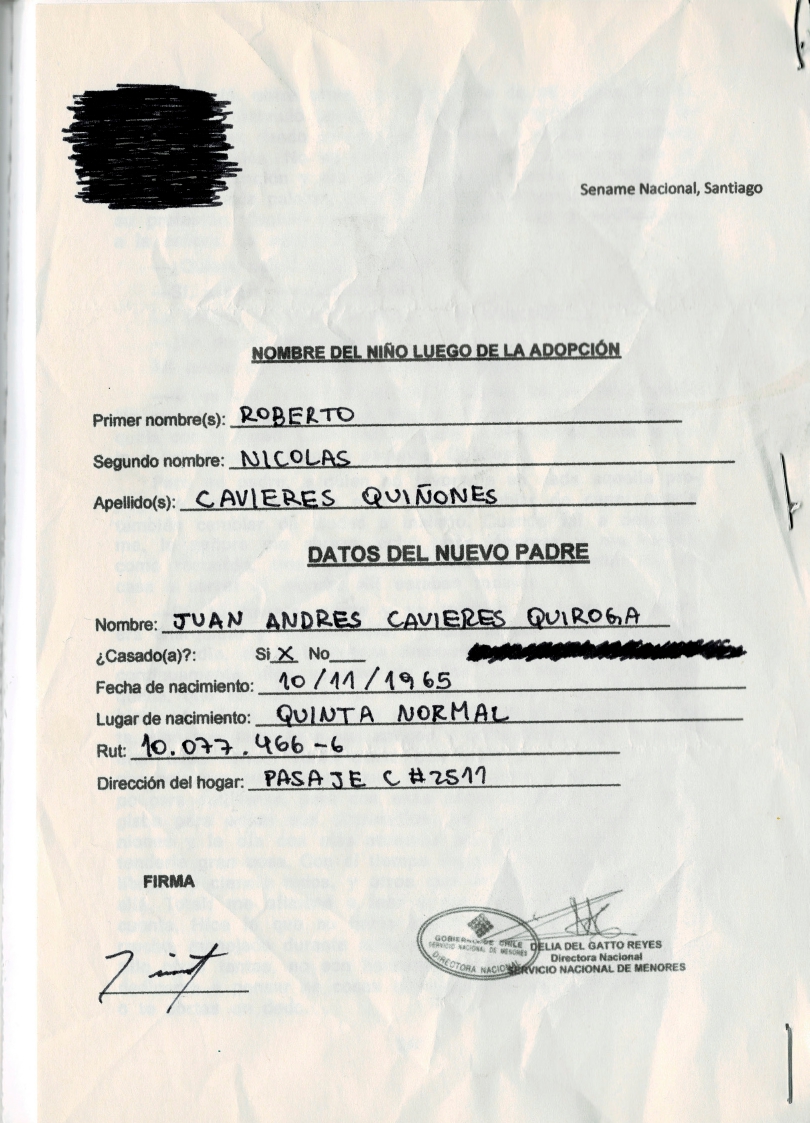 Sename Nacional, Santiago
NOMBRE DEL NIÑO LUEGO DE LA ADOPCIÓN
Primer nombre(s): ROBERTO
Segundo nombre: NICOLAS
Apellido(s): CAVIERES QUIÑONES
DATOS DEL NUEVO PADRE
Nombre: JUAN ANDRES CAVIERES QUIROGA
¿Casado(a)?: Si X No
Fecha de nacimiento: 10/11/1965
Lugar de nacimiento: QUINTA NORMAL
Rut: 10.077.466-6
Dirección del hogar: PASAJE C #2511
FIRMA
GOBIERNO DE CHILE
SERVICIO NACIONAL DE MENORES
DIRECTORA NACIONAL
DELIA DEL GATTO REYES
Directora Nacional
SERVICIO NACIONAL DE MENORES